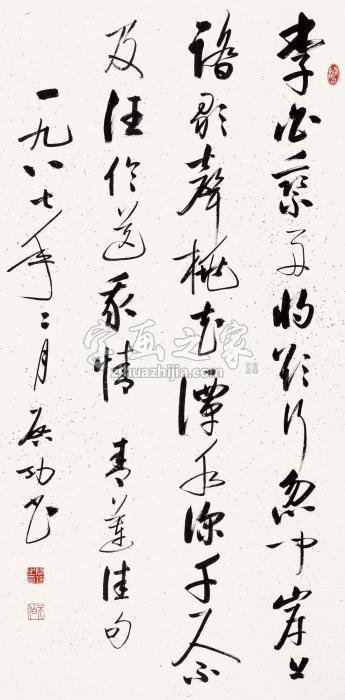 李白乘舟將欲行忽聞岸上
踏歌聲桃花潭水深千尺不
及汪倫送我情 青蓮佳句
一九八七年二月 啓功書
字画之家
zihuazhijia.com